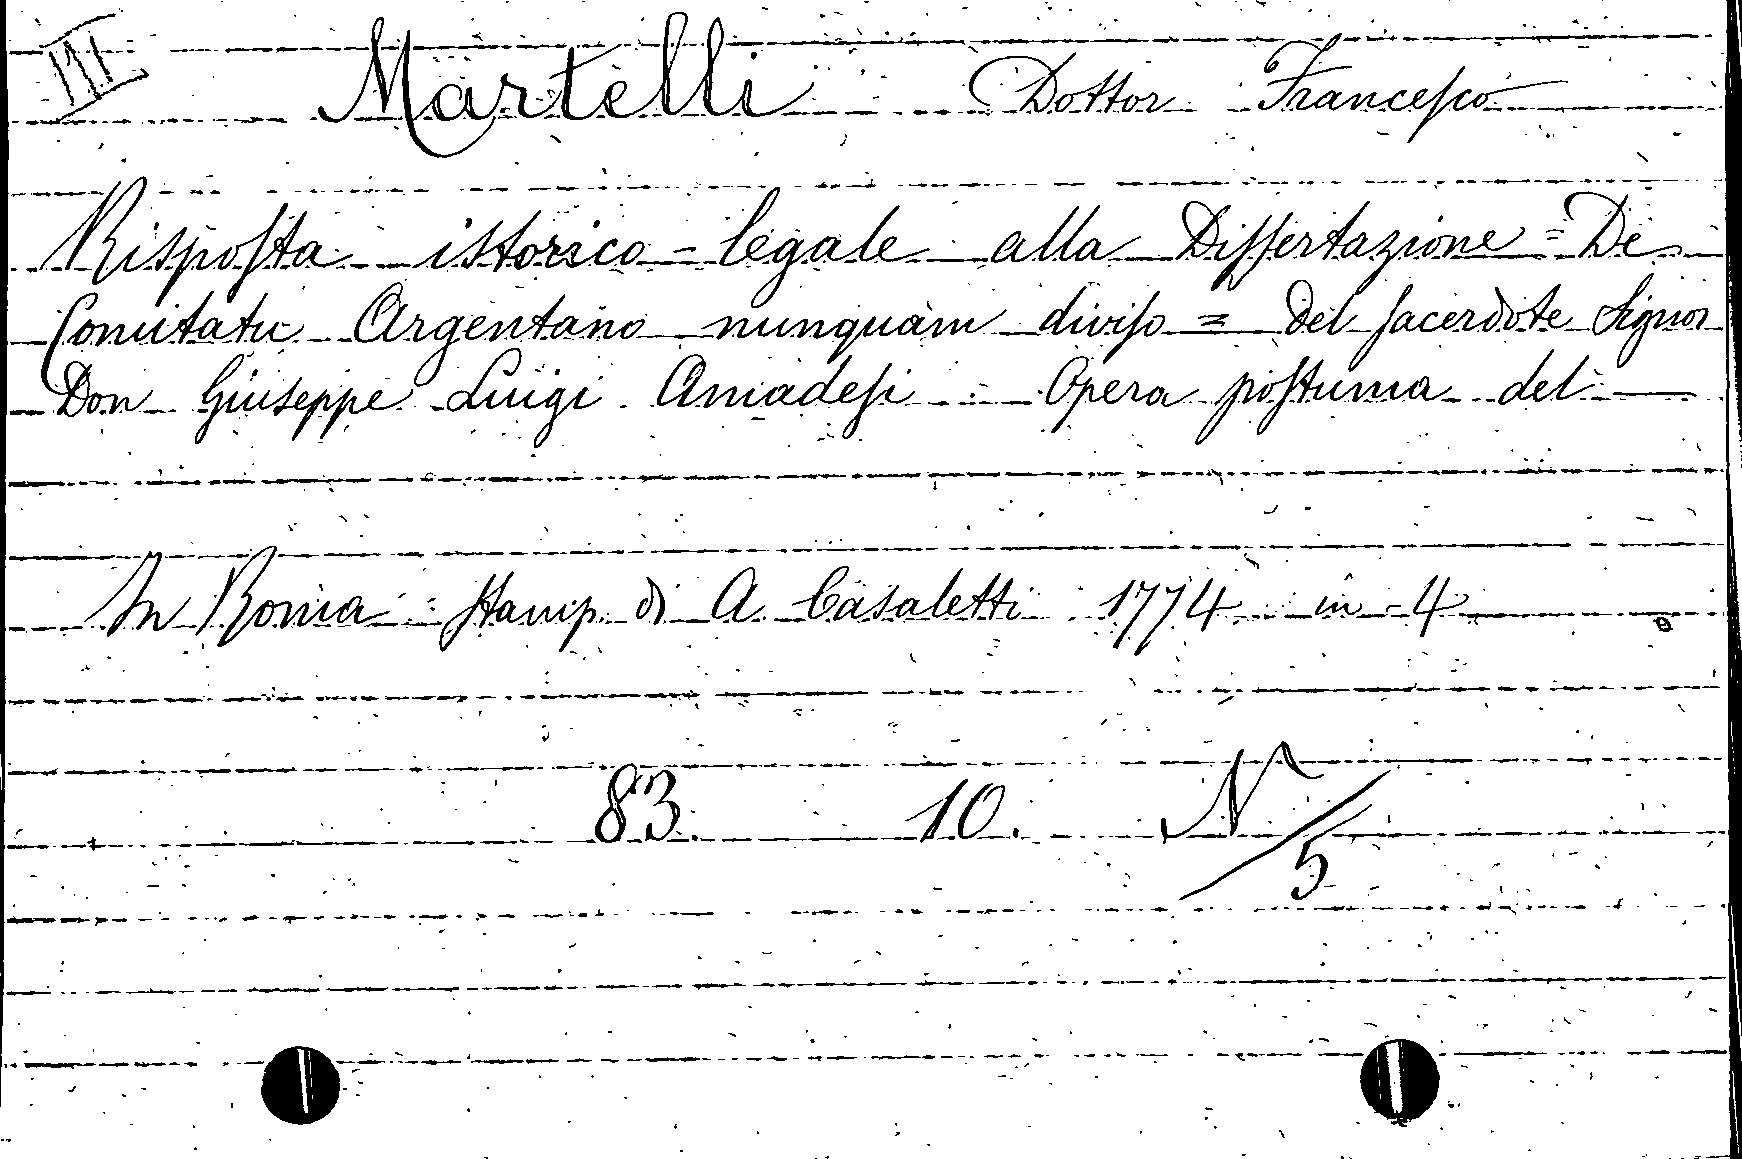 III
Martelli Dottor Francesco
Risposta istorico-legale alla Dissertazione = De
Comitatu Argentano nunquam diviso = del sacerdote Signor
Don Giuseppe Luigi Amadesi - Opera postuma del —
In Roma - Stamp. di A. Casaletti 1774 in-4
83. 10. N/5